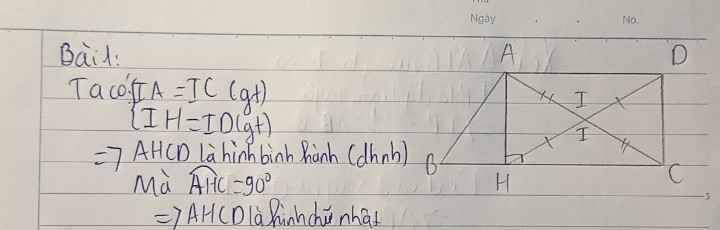 Ngày . . No.
Bài 1:
Ta có: { IA = IC (gt)
{ IH = ID (gt)
=> AHCD là hình bình hành (dhnb)
Mà AHC = 90°
=> AHCD là hình chữ nhật
A D
I
I
B H C